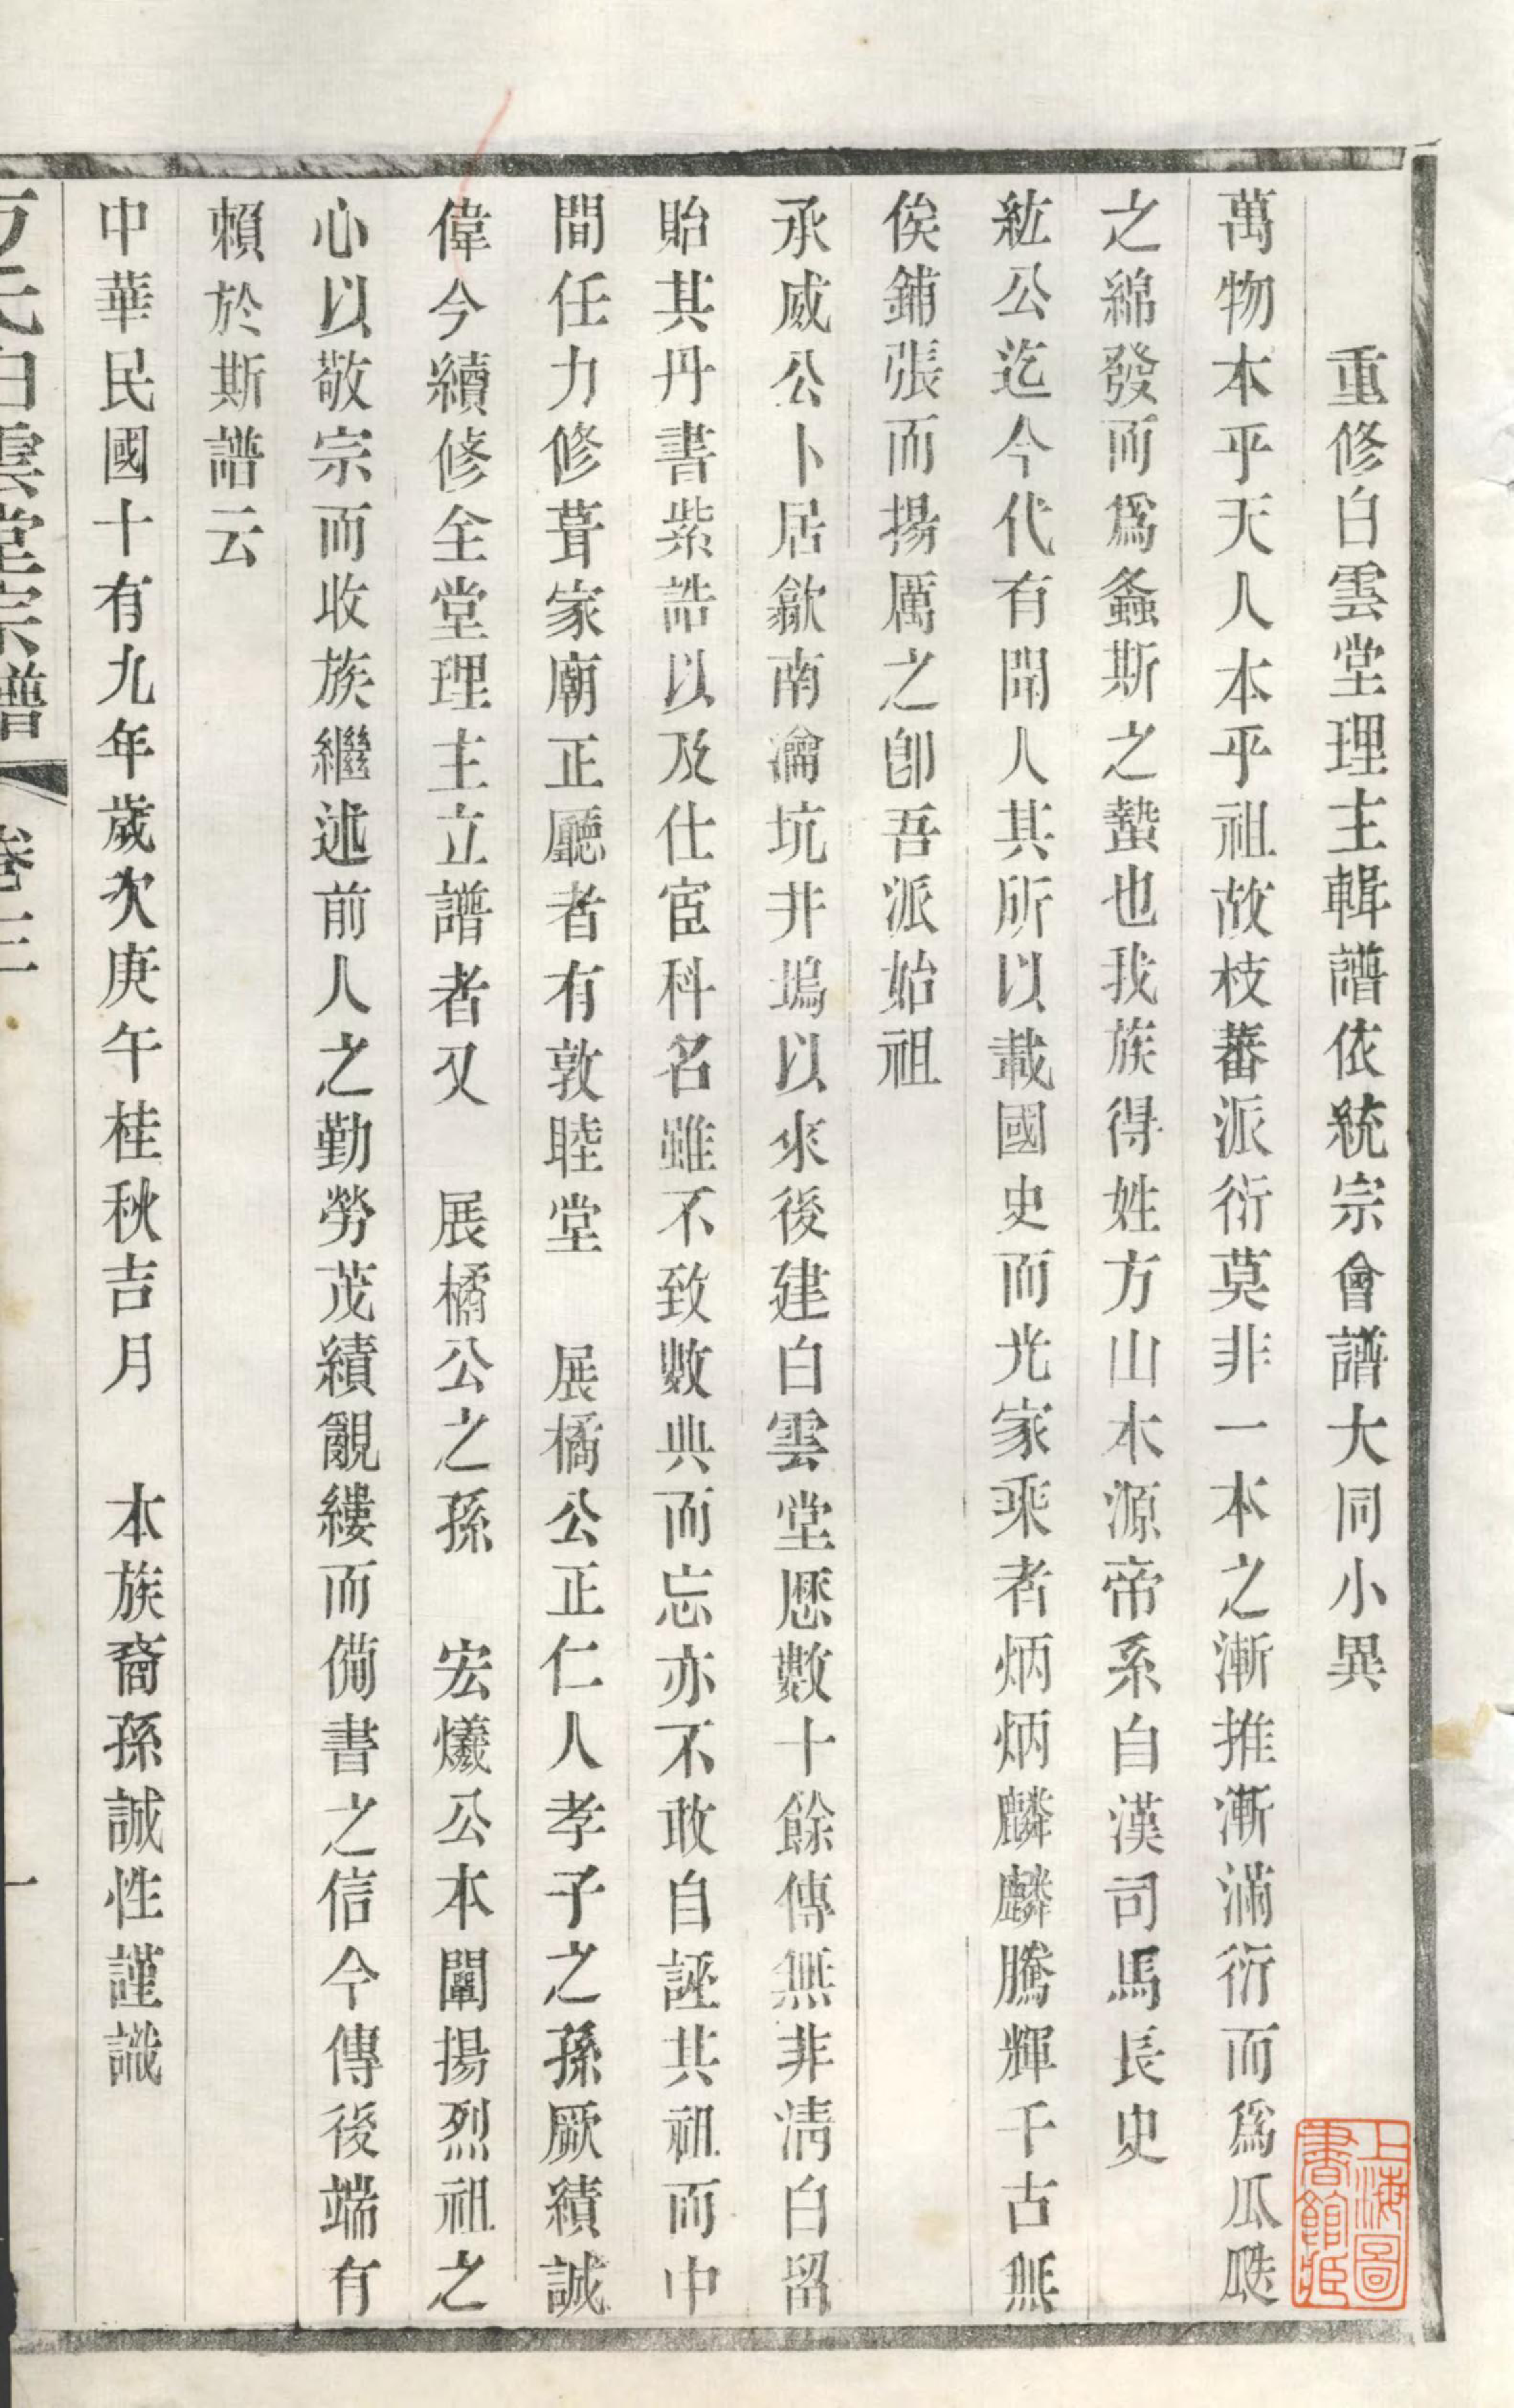 重修白雲堂理主輯譜依統宗會譜大同小異
萬物本乎天人本乎祖故枝蕃派衍莫非一本之漸推漸滿衍而爲瓜瓞
之綿發而爲螽斯之蟄也我族得姓方山木源帝系自漢司馬長史
紘公迄今代有聞人其所以載國史而光家乘者炳炳麟麟騰輝千古無
俟鋪張而揚厲之卽吾派始祖
承威公卜居歙南瀹坑井塢以來後建白雲堂歷數十餘傳無非淸白留
貽其丹書紫誥以及仕宦科名雖不致數典而忘亦不敢自誣其祖而中
間任力修葺家廟正廳者有敦睦堂 展橘公正仁人孝子之孫厥績誠
偉今續修全堂理主立譜者又 展橘公之孫 宏爔公本闡揚烈祖之
心以敬宗而收族繼述前人之勤勞茂績覼縷而備書之信今傳後端有
賴於斯譜云
中華民國十有九年歲次庚午桂秋吉月 本族裔孫誠性謹識
方氏白雲堂宗譜 卷三 一
上海圖書館藏